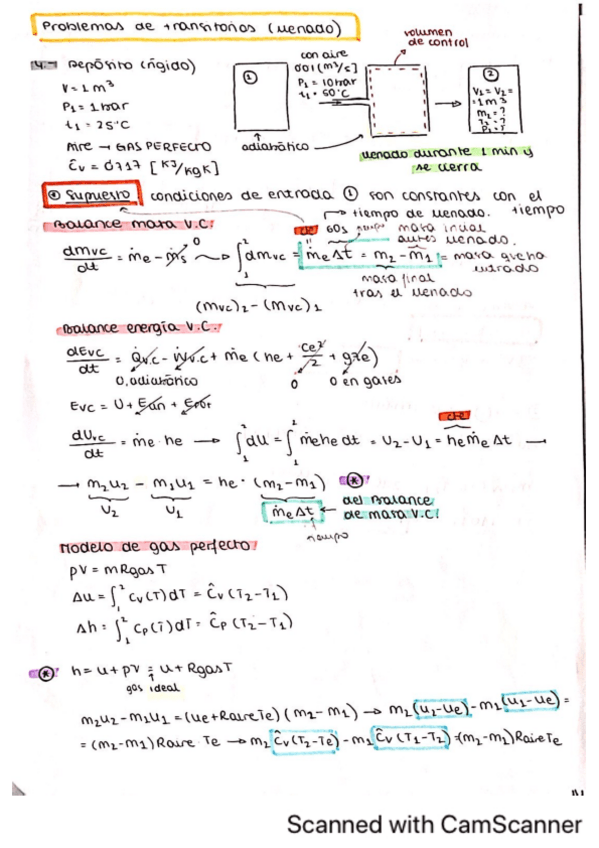 Problemas de transitorios (llenado)
4.7 Depósito (rígido)
V = 1 m³
P₁ = 1 bar
t₁ = 25°C
Aire → GAS PERFECTO
ĉv = 0,717 [KJ/KgK]
①
adiabático
con aire
0,01 [m³/s]
P₁ = 10 bar
t₁ = 50°C
volumen
de control
②
V₁ = V₂ =
= 1 m³
m₂ = ?
T₂ = ?
P₂ = ?
llenado durante 1 min y
se cierra
Supuesto condiciones de entrada ① son constantes con el
tiempo
Balance masa V.C.
dmvc/dt = ṁe - ṁs ⟿ ∫₁² dmvc = ṁeΔt = m₂ - m₁ = masa que ha
entrado
0
cte 60s
tiempo de llenado.
masa inicial
antes llenado.
masa final
tras el llenado
(mvc)₂ - (mvc)₁
Balance energía V.C.
dEvc/dt = Q̇v.c - Ẇv.c + ṁe (he + Ce²/2 + gze)
0, adiabático
0
0 en gases
Evc = U + Ecin + Epot
dUvc/dt = ṁe · he → ∫₁² dU = ∫₁² ṁe he dt = U₂ - U₁ = he ṁe Δt →
cte
→ m₂u₂ - m₁u₁ = he · (m₂ - m₁) ⊛
U₂
U₁
ṁeΔt ← del Balance
de masa V.C.
tiempo
Modelo de gas perfecto
pV = mRgasT
Δu = ∫₁² Cv(T)dT = ĉv (T₂ - T₁)
Δh = ∫₁² Cp(T)dT = ĉp (T₂ - T₁)
⊛ h = u + pv = u + RgasT
gas ideal
m₂u₂ - m₁u₁ = (ue + RaireTe) (m₂ - m₁) → m₂(u₂ - ue) - m₁(u₁ - ue) =
= (m₂ - m₁)Raire · Te → m₂ĉv(T₂ - Te) - m₁ĉv(T₁ - T₂) = (m₂ - m₁)RaireTe
Scanned with CamScanner